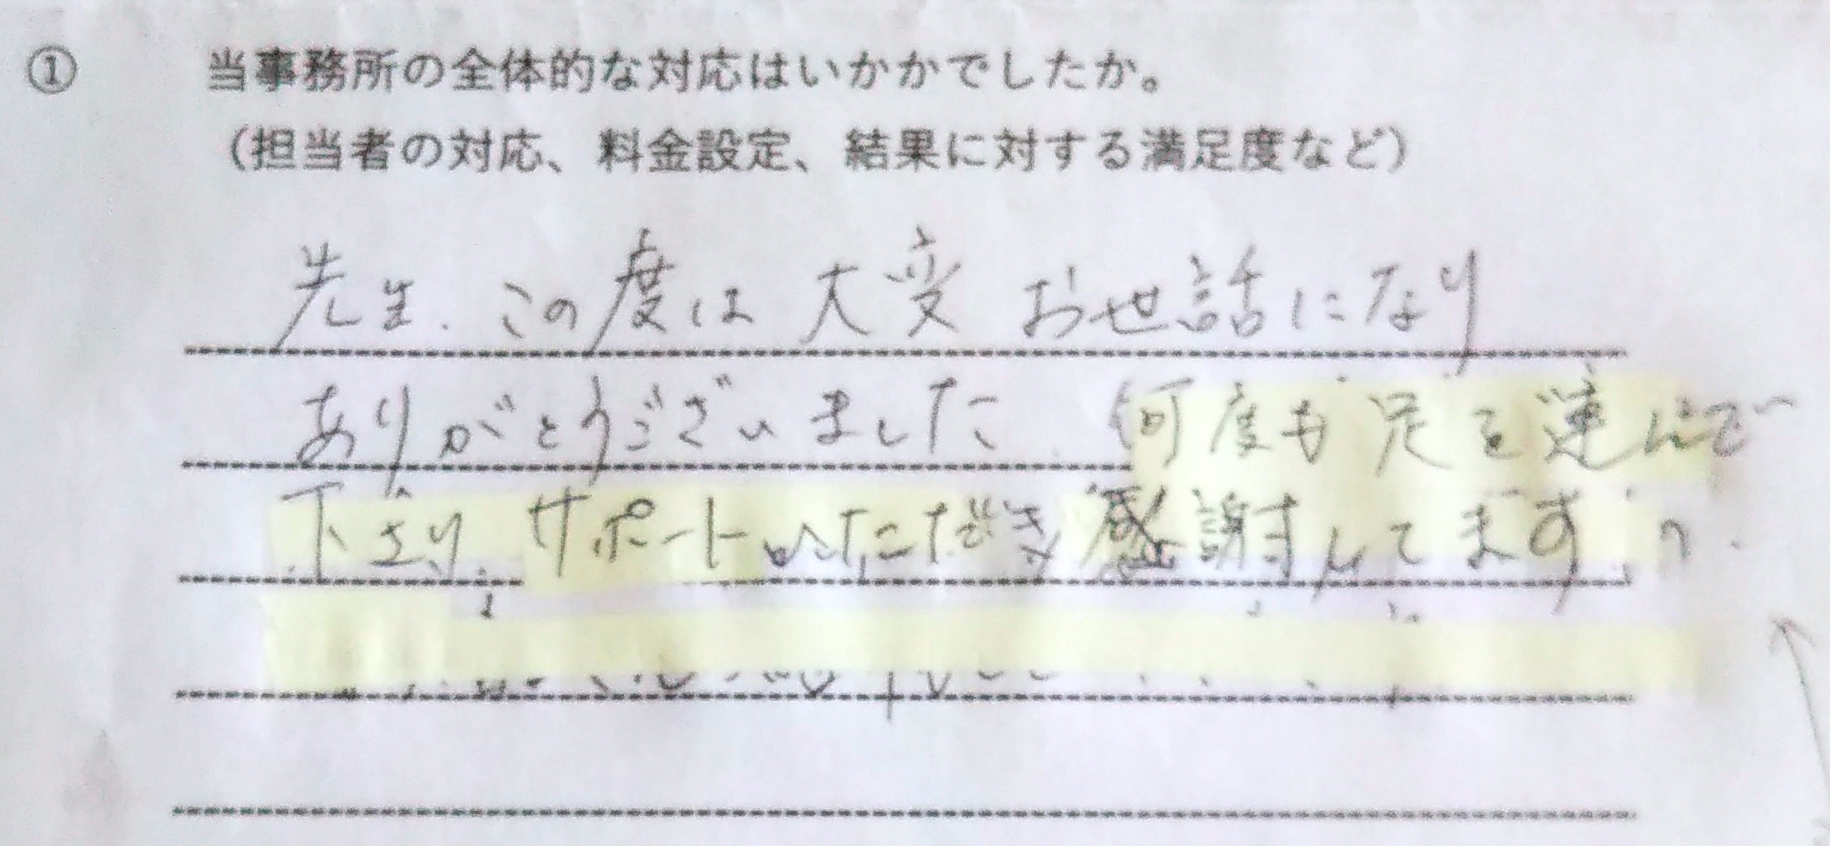 ① 当事務所の全体的な対応はいかかでしたか。
（担当者の対応、料金設定、結果に対する満足度など）
先生、この度は大変お世話になり
ありがとうございました 何度も足を運んで
下さり サポートいただき 感謝してます